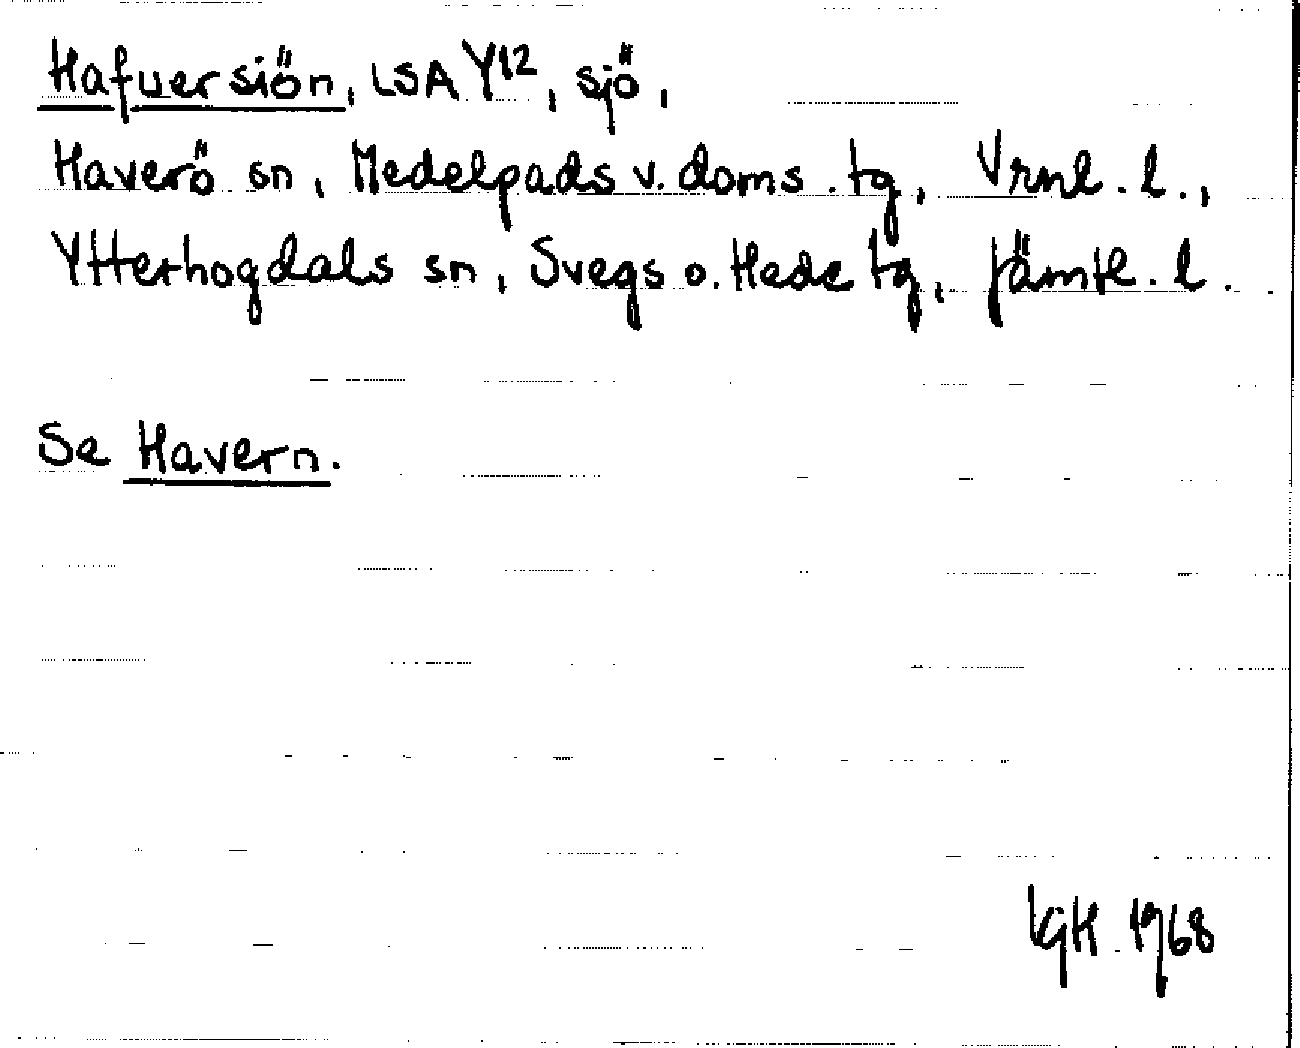 Hafuersiön, LSA Y12, sjö,
Haverö sn, Medelpads v. doms. tg, Vrnl. l.,
Ytterhogdals sn, Svegs o. Hede tg, Jämtl. l.
Se Havern.
LGH 1968